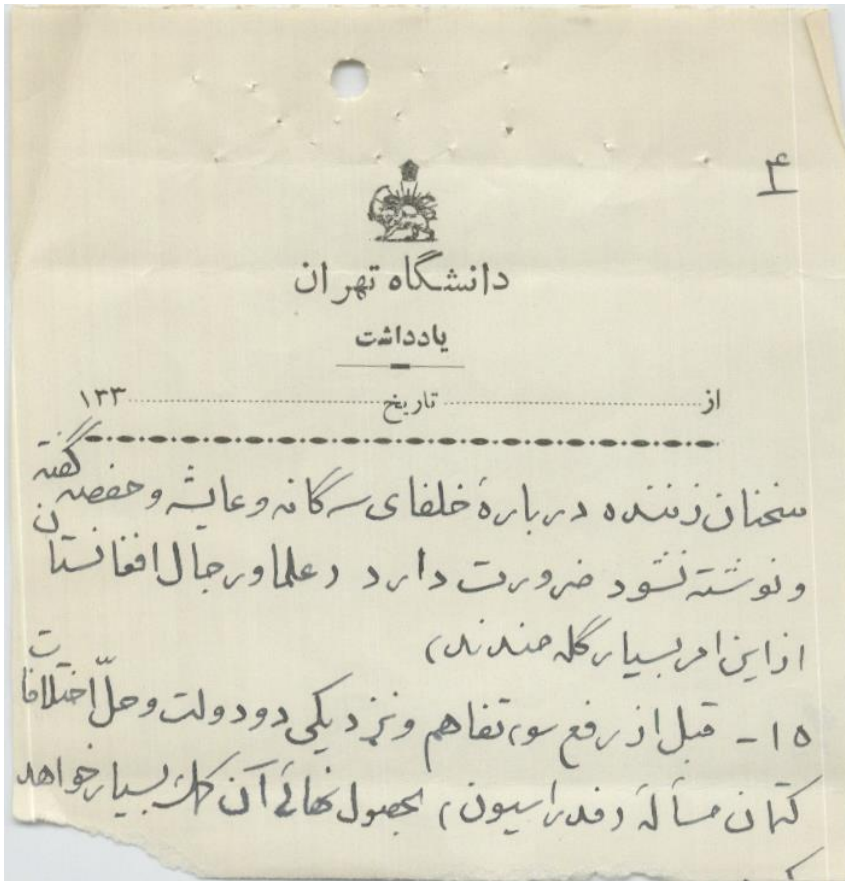 ۴
دانشگاه تهران
یادداشت
از تاریخ ۱۳۳
سخنان زننده دربارهٔ خلفای سه گانه و عایشه و حفصه گفته
و نوشته نشود ضرورت دارد (علما و رجال افغانستان
از این امر بسیار گله مندند)
۱۵- قبل از رفع سوء تفاهم و نزدیکی دو دولت و حلّ اختلافات
کتمان مسألهٔ (فدراسیون) بحصول نهائی آن کمک بسیار خواهد